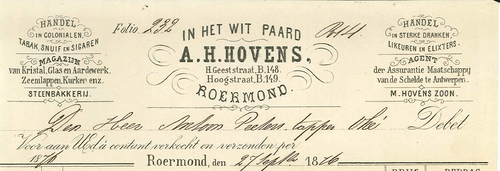 HANDEL
in COLONIALEN,
TABAK, SNUIF en SIGAREN
MAGAZIJN
van Kristal, Glas en Aardewerk.
Zeemlappen, Kurken enz.
STEENBAKKERIJ.
Folio 232
IN HET WIT PAARD
A. H. HOVENS,
H. Geeststraat, B. 148.
Hoogstraat, B. 149.
ROERMOND.
HANDEL
in STERKE DRANKEN,
LIKEUREN en ELIXTERS.
AGENT
der Assurantie Maatschappij
van de Schelde te Antwerpen.
M. HOVENS ZOON.
Den Heer Antoon Peeters, tapper Debet
Voor aan UEd. à contant verkocht en verzonden per
1876 Roermond, den 27 Septbr 1876